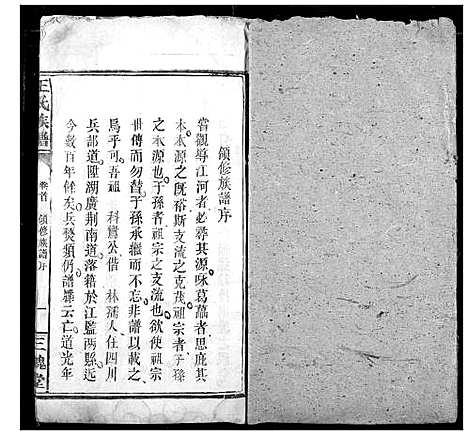 領修族譜序
嘗觀導江河者必尋其源咏葛藟者思庇其
本本源之旣裕斯支流之克茂祖宗者子孫
之本源也子孫者祖宗之支流也欲使祖宗
世傳而勿替子孫承繼而不忘非譜以載之
烏乎可吾祖 科鸞公偕 林孺人住四川
兵部道陞湖廣荆南道落籍於江監兩縣遠
今數百年餘矣兵燹頻仍譜牒云亡道光年
王氏族譜 卷首 領修族譜序 一 三槐堂